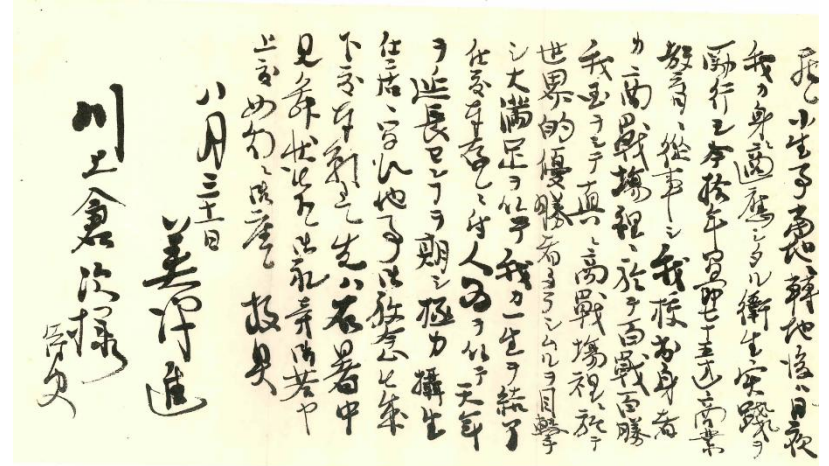 小生事当地転地後ハ日夜
我カ身ニ適應シタル衛生実践ヲ
勵行シ今後年齢七十五迄商業
教育ニ從事シ我校出身者
カ商戰場裡ニ於テ百戰百勝
我国ヲシテ真ニ商戰場裡ニ於テ
世界的優勝者タラシムルヲ目撃
シ大満足ヲ以テ我カ一生ヲ結了
仕度存候ニ付人為ヲ以テ天年
ヲ延長センコヲ期シ極力攝生
仕居候間乍他事御放念被成
下度奉願上候先ハ右暑中
見舞状
上度如此ニ御座候 敬具
八月三十一日
進
川上倉次様
侍史